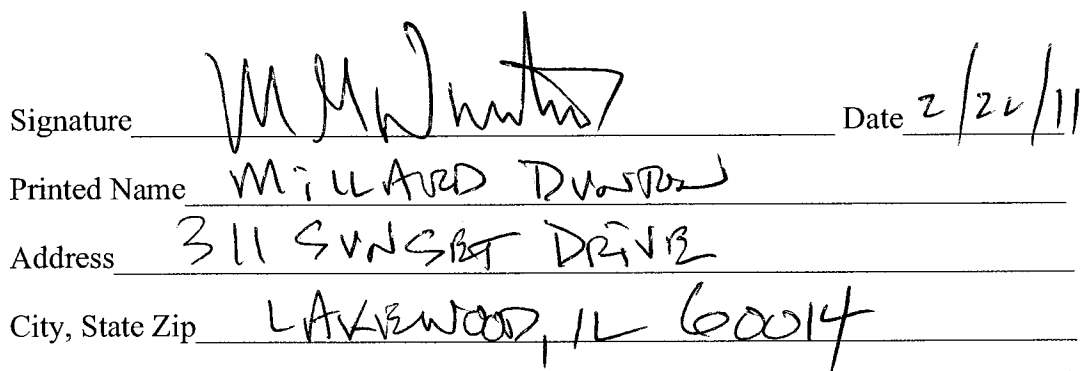 Signature Date 2/22/11
Printed Name MILLARD DUNTON
Address 311 SUNSET DRIVE
City, State Zip LAKEWOOD, IL 60014